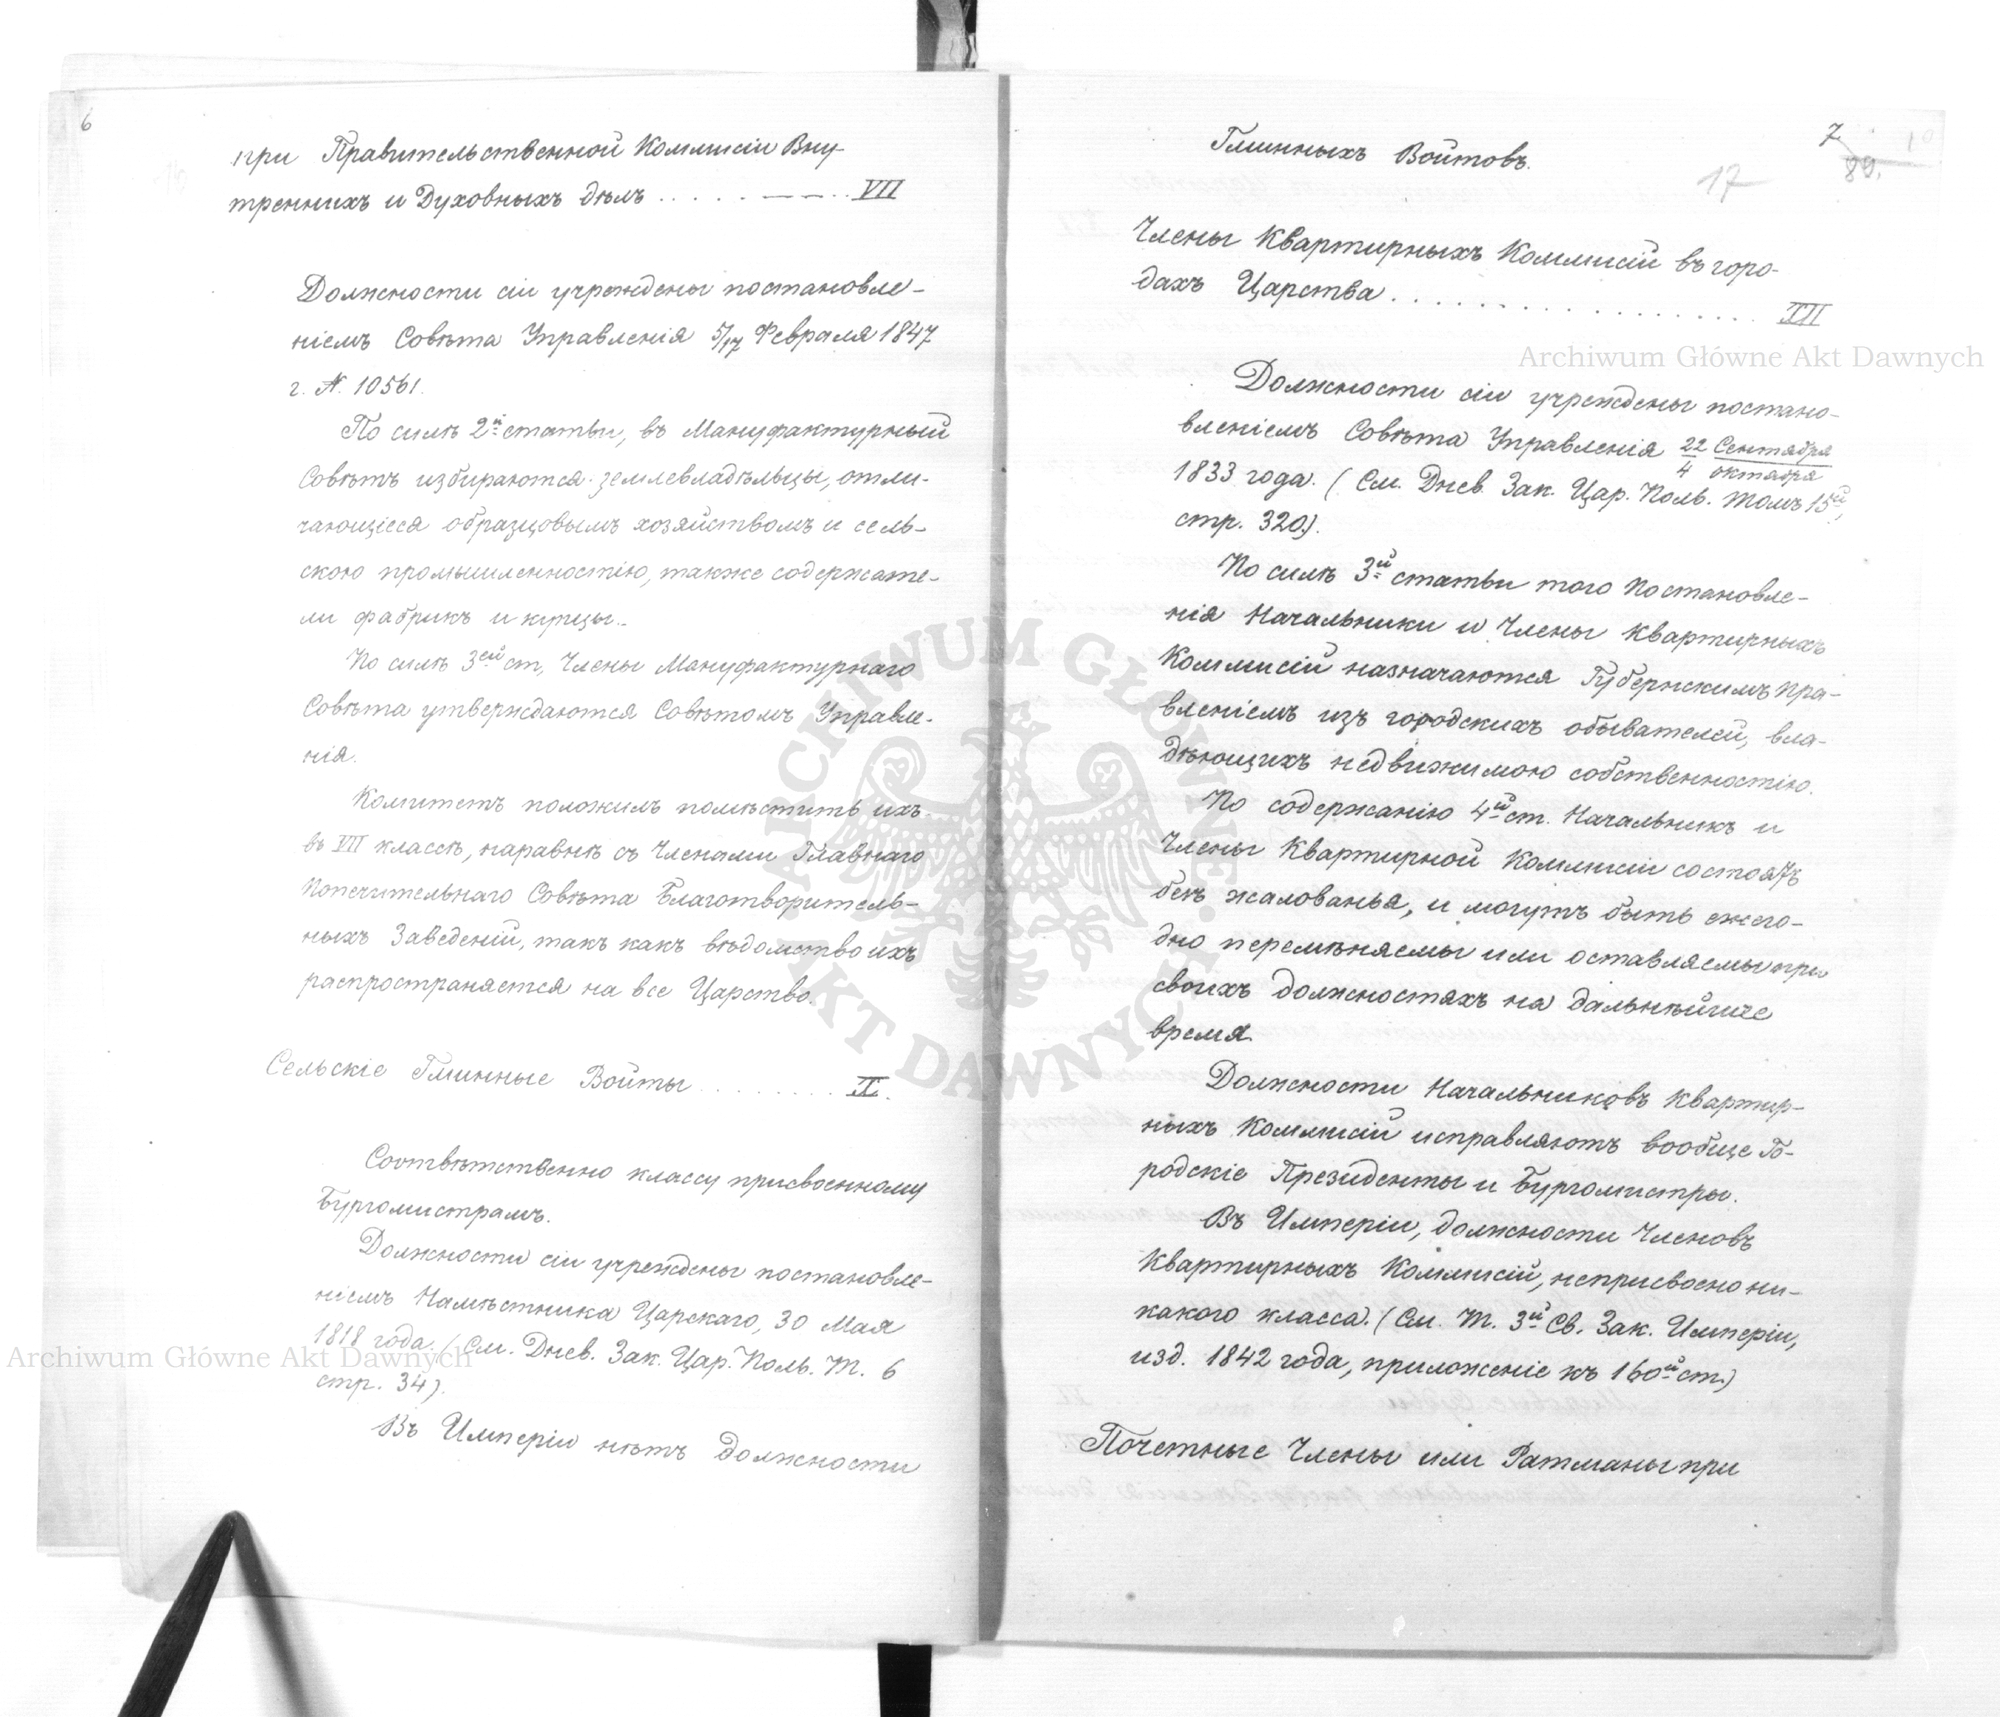 6
при Правительственной Коммисіи Вну-
тренних и Духовныхъ дѣлъ . . . . . — — . . VII
Должности сіи учреждены постановле-
ніемъ Совѣта Управленія 5/17 Февраля 1847
г. №. 10561.
По силѣ 2й статьи, въ Мануфактурный
Совѣтъ избираются землевладѣльцы, отли-
чающіеся образцовымъ хозяйствомъ и сель-
скою промышленностію, также содержате-
ли фабрикъ и купцы.
По силѣ 3ей ст, Члены Мануфактурнаго
Совѣта утверждаются Совѣтомъ Управле-
нія.
Комитетъ положилъ помѣстить ихъ
въ VII классѣ, наравнѣ съ Членами Главнаго
Попечительнаго Совѣта Благотворитель-
ныхъ Заведеній, такъ какъ вѣдомство ихъ
распространяется на все Царство.
Сельскіе Гминные Войты . . . . . . . . IX.
Соотвѣтственно классу присвоенному
Бургомистрамъ.
Должности сіи учреждены постановле-
ніемъ Намѣстника Царскаго, 30 Мая
1818 года. (См. Днев. Зак. Цар. Поль. Т. 6
стр. 34).
Въ Имперіи нѣтъ должности
7
89.
10
17
Гминныхъ Войтовъ.
Члены Квартирныхъ Коммисій въ горо-
дахъ Царства . . . . . . . . . . . . . . . . . XII
Должности сіи учреждены постано-
вленіемъ Совѣта Управленія 22 Сентября / 4 октября
1833 года. (См. Днев. Зак. Цар. Поль. Томъ 15й,
стр. 320).
По силѣ 3й статьи того Постановле-
нія Начальники и Члены Квартирныхъ
Коммисій назначаются Губернскимъ Пра-
вленіемъ изъ городскихъ обывателей, вла-
дѣющихъ недвижимою собственностію.
По содержанію 4й ст. Начальникъ и
Члены Квартирной Коммисіи состоятъ
безъ жалованья, и могутъ быть ежего-
дно перемѣняемы или оставляемы при
своихъ должностяхъ на дальнѣйшее
время.
Должности Начальниковъ Квартир-
ныхъ Коммисій исправляютъ вообще Го-
родскіе Президенты и Бургомистры.
Въ Имперіи, должности Членовъ
Квартирныхъ Коммисій, неприсвоено ни-
какого класса. (См. Т. 3й Св. Зак. Имперіи,
изд. 1842 года, приложеніе къ 160й ст.)
Почетные Члены или Ратманы при
Archiwum Główne Akt Dawnych
Archiwum Główne Akt Dawnych
ARCHIWUM GŁÓWNE AKT DAWNYCH